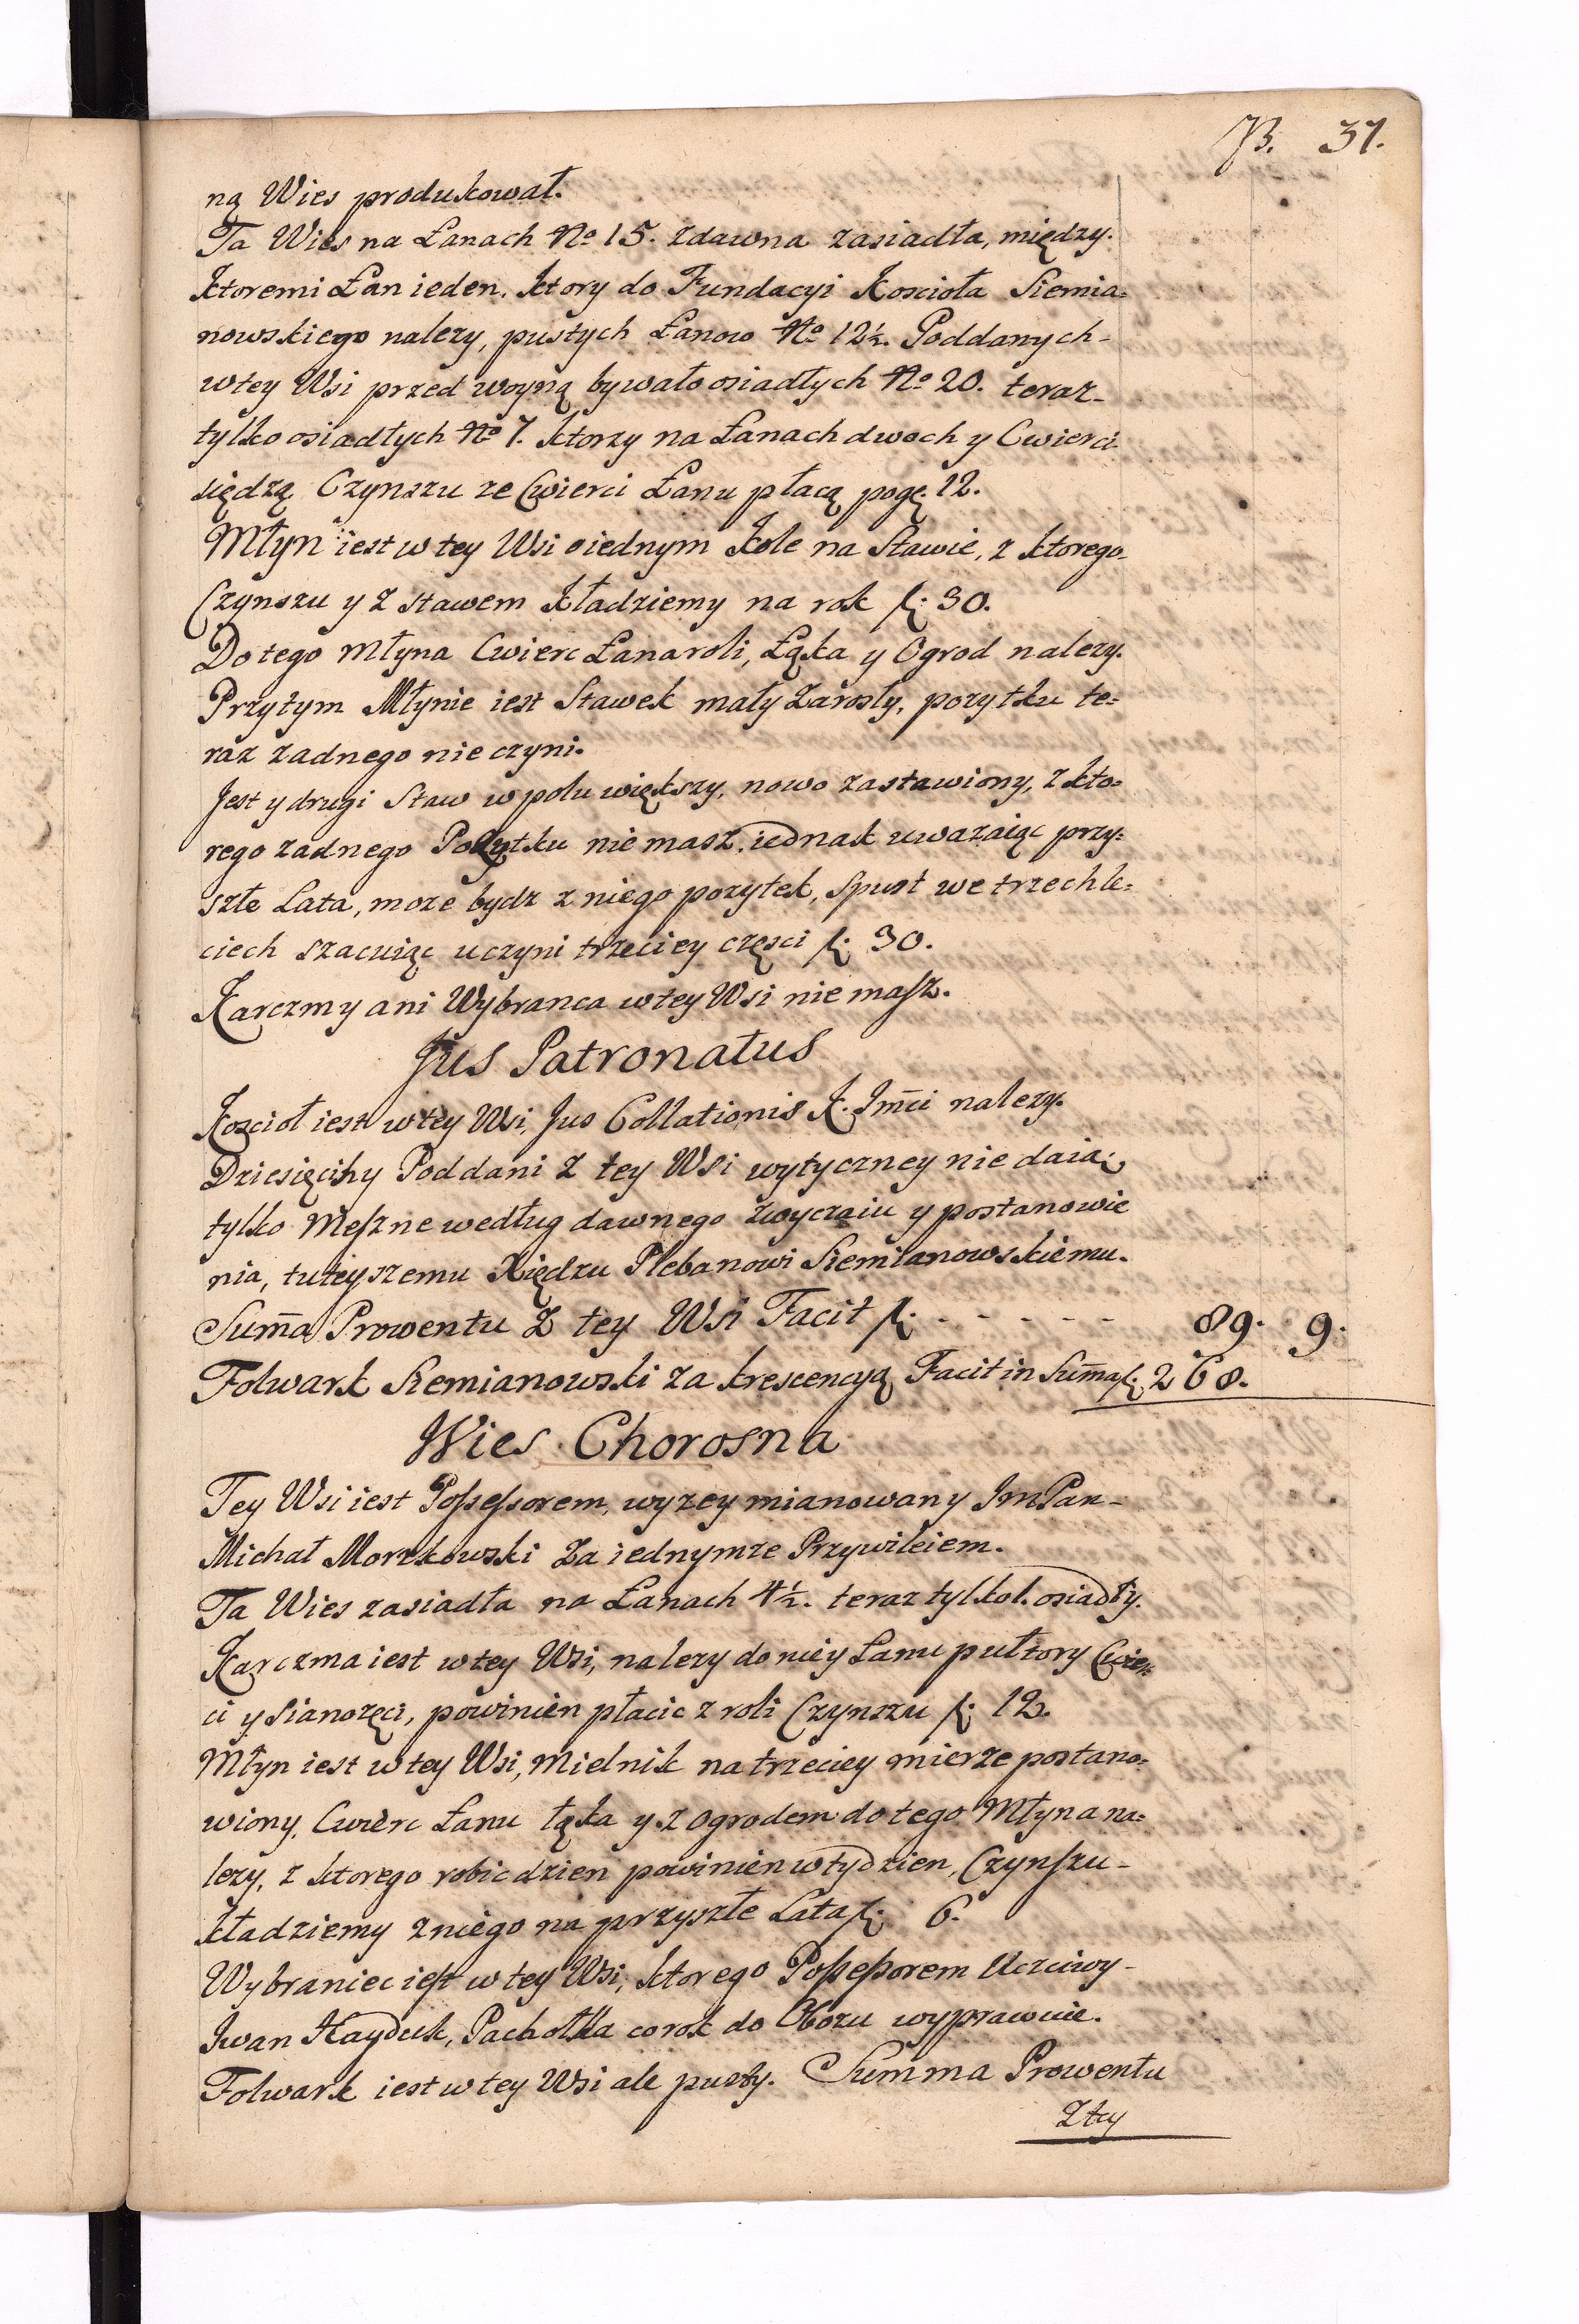 B. 37.
ną Wies produkował.
Ta Wies na Łanach No 15. zdawna zasiadła, między.
ktoremi Łan ieden, ktory do Fundacyi Koscioła Siemia=
nowskiego nalezy, pustych Łanow No 12½. Poddanych-
wtey Wsi przed woyną bywało osiadłych No 20. teraz-
tylko osiadłych No 7. ktorzy na Łanach dwoch y Cwierci
siędzą Czynszu ze Cwierci Łanu płacą pogę. 12.
Młyn iest w tey Wsi o iednym Kole na Stawie, z ktorego-
Czynszu y z stawem kładziemy na rok f: 30.
Do tego Młyna Cwierc Łanaroli, Łąka y Ogrod nalezy.
Przytym Młynie iest Stawek mały Zarosły, pozytku te=
raz zadnego nie czyni.
Jest y drugi Staw w polu większy, nowo zastawiony, z kto=
rego zadnego Pozytku nie masz, iednak uwazaiąc przy=
szłe Lata, moze bydz z niego pozytek, Spust we trzech le=
ciech szacuiąc uczyni trzeciey częsci f: 30.
Karczmy ani Wybranca wtey Wsi nie masz.
Jus Patronatus
Koscioł iest w tey Wsi, Jus Collationis K. Jmci nalezy.
Dziesięciny Poddani z tey Wsi wytyczney nie daią,
tylko Meszne według dawnego zwyczaiu y postanowie
nia, tuteyszemu Xiędzu Plebanowi Siemianowskiemu.
Sum̄a Prowentu z tey Wsi Facit f: - - - - - - 89. 9.
Folwark Siemianowski za krescencyą Facit in Sum̄a f: 268.
Wies Chorosna
Tey Wsi iest Possessorem, wyzey mianowany Jm Pan-
Michał Morzkowski Za iednymze Przywileiem.
Ta Wies zasiadła na Łanach 4½. teraz tylko 1. osiadły.
Karczma iest w tey Wsi, nalezy do niey Łanu pułtory Cwier
ci y Sianozęci, powinien płacic z roli Czynszu f: 12.
Młyn iest w tey Wsi, Mielnik na trzeciey mierze postano=
wiony, Cwierc Łanu łąka y z ogrodem do tego Młyna na=
lezy, z ktorego robic dzien powinien w tydzien, Czynszu-
kładziemy z niego na przyszłe Lata f: 6.
Wybraniec iest w tey Wsi, ktorego Possessorem Uczciwy-
Jwan Hayduk, Pachołka co rok do Obozu wyprawuie.
Folwark iest w tey Wsi ale pusty. Summa Prowentu
Z tey